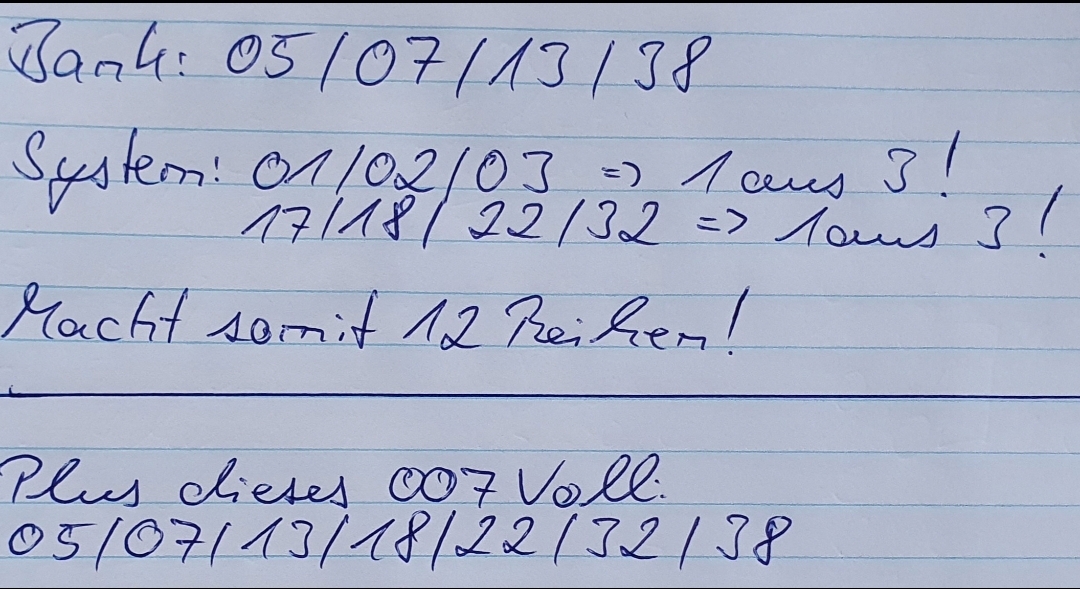 Bank: 05/07/13/38
System: 01/02/03 => 1 aus 3!
17/18/22/32 => 1 aus 3!
Macht somit 12 Reihen!
Plus dieses 007 Voll:
05/07/13/18/22/32/38